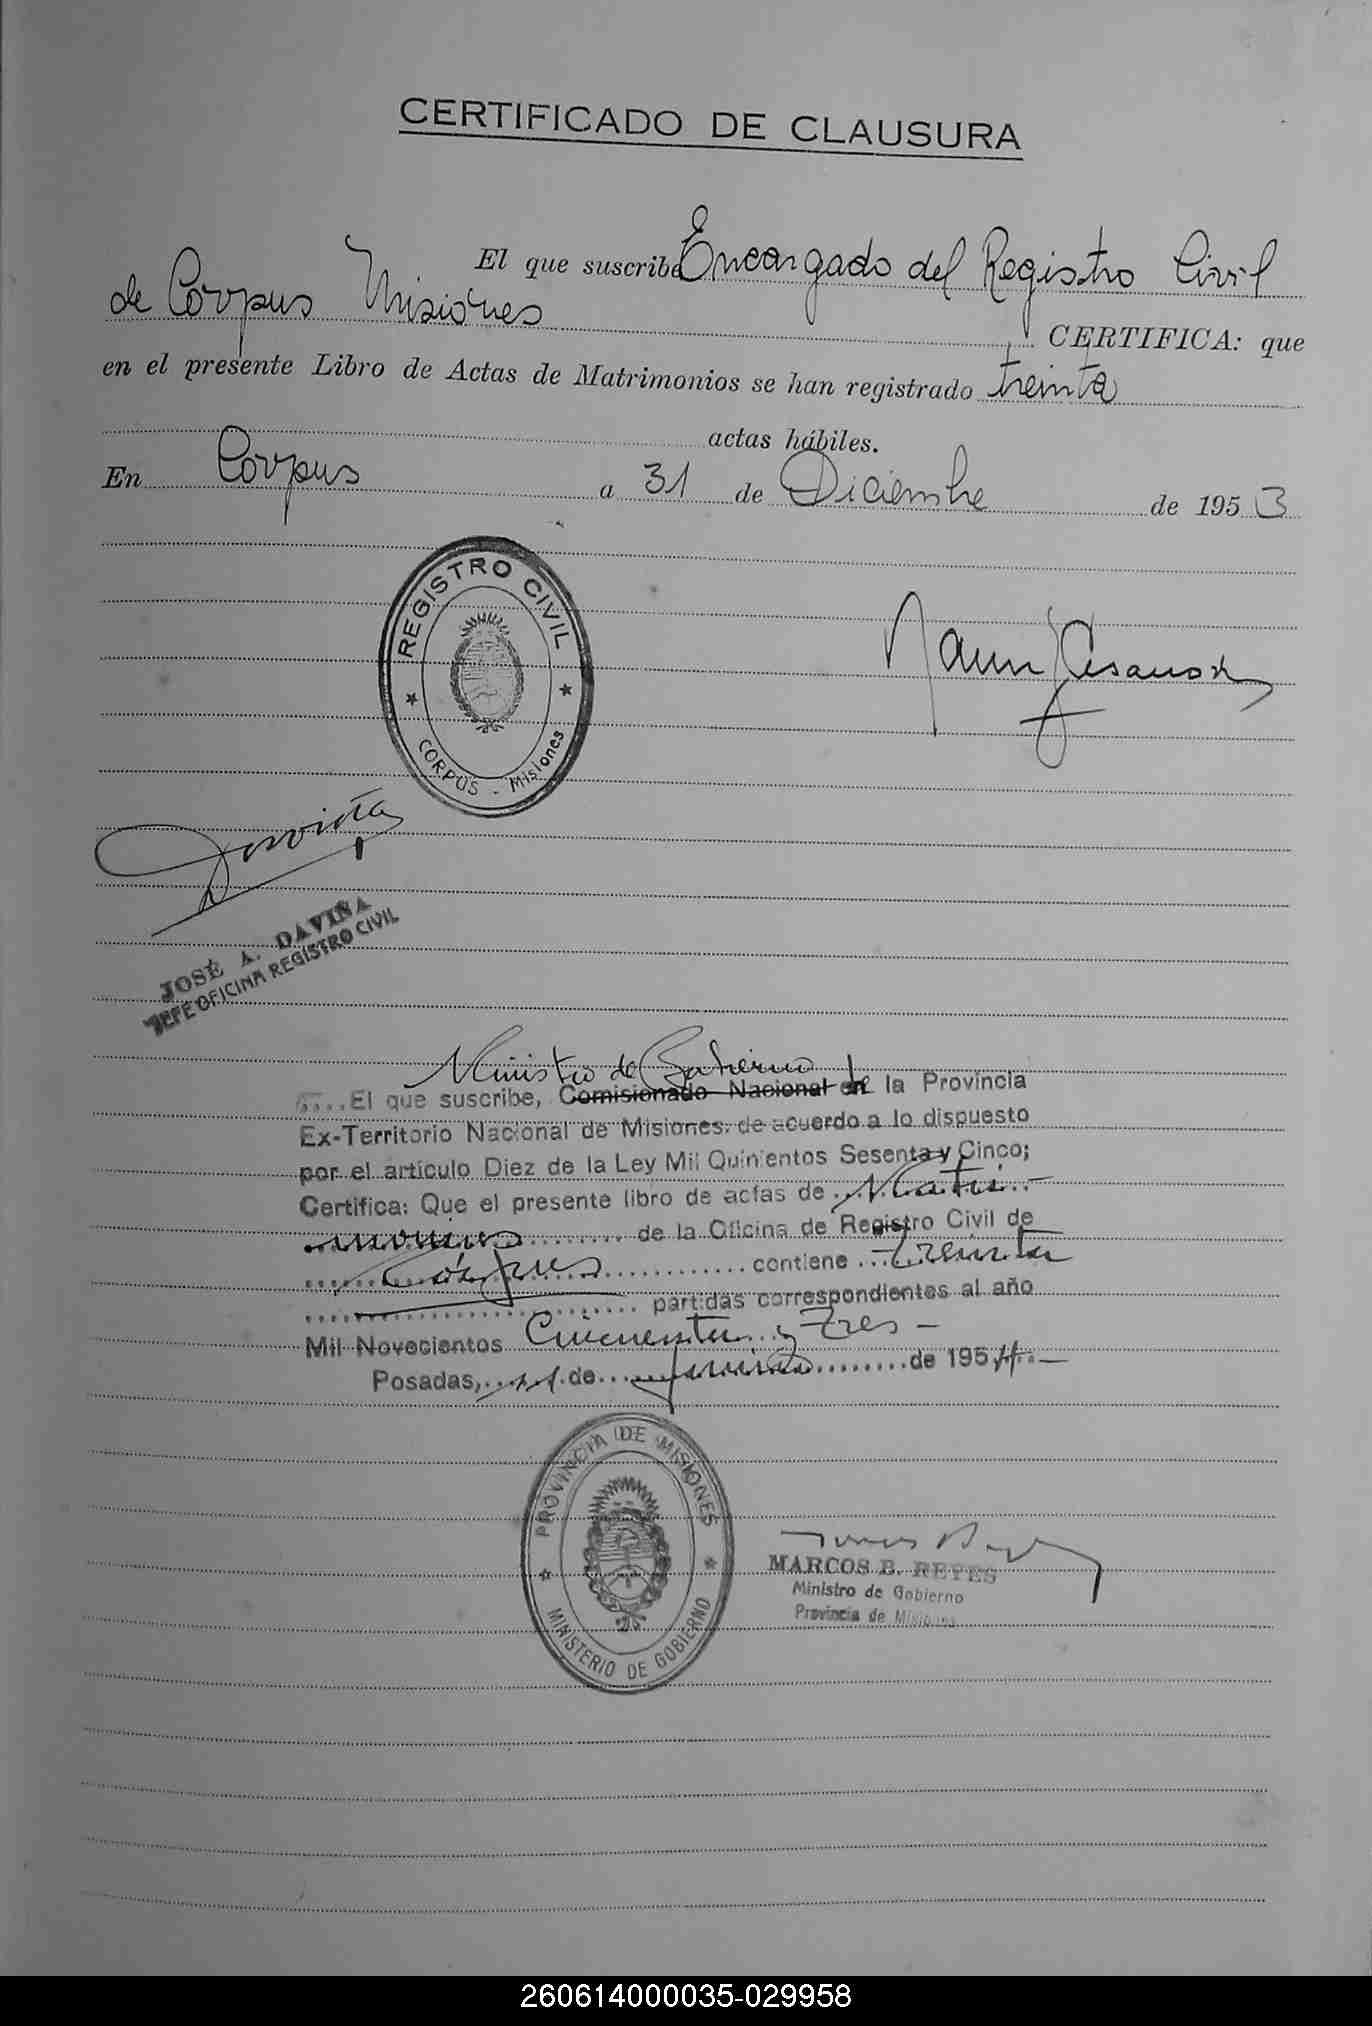 CERTIFICADO DE CLAUSURA
El que suscribe Encargado del Registro Civil
de Corpus Misiones CERTIFICA: que
en el presente Libro de Actas de Matrimonios se han registrado treinta
actas hábiles.
En Corpus a 31 de Diciembre de 1953
REGISTRO CIVIL
CORPUS - Misiones
JOSÉ A. DAVIÑA
JEFE OFICINA REGISTRO CIVIL
Ministro de Gobierno
El que suscribe, Comisionado Nacional de la Provincia
Ex-Territorio Nacional de Misiones, de acuerdo a lo dispuesto
por el artículo Diez de la Ley Mil Quinientos Sesenta y Cinco;
Certifica: Que el presente libro de actas de Matri-
monios de la Oficina de Registro Civil de
Corpus contiene treinta
partidas correspondientes al año
Mil Novecientos Cincuenta y tres -
Posadas, de de 1954.-
PROVINCIA DE MISIONES
MINISTERIO DE GOBIERNO
MARCOS B. REYES
Ministro de Gobierno
Provincia de Misiones
260614000035-029958